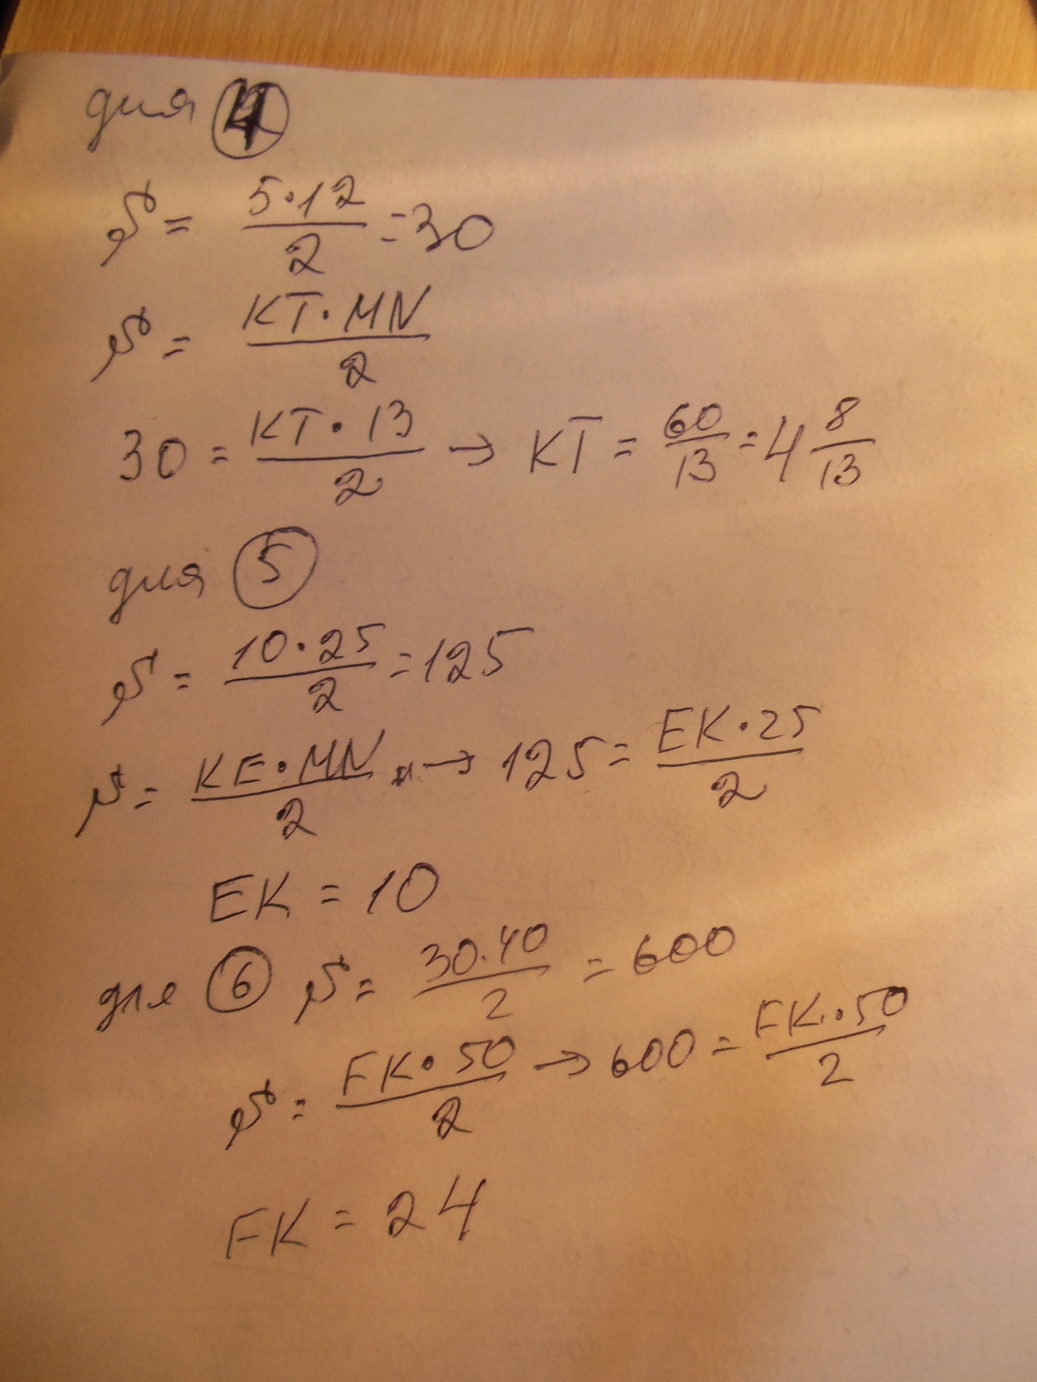 для 4
S = 5·12/2 = 30
S = KT·MN/2
30 = KT·13/2 → KT = 60/13 = 4 8/13
для 5
S = 10·25/2 = 125
S = KE·MN/2 → 125 = EK·25/2
EK = 10
для 6 S = 30·40/2 = 600
S = FK·50/2 → 600 = FK·50/2
FK = 24